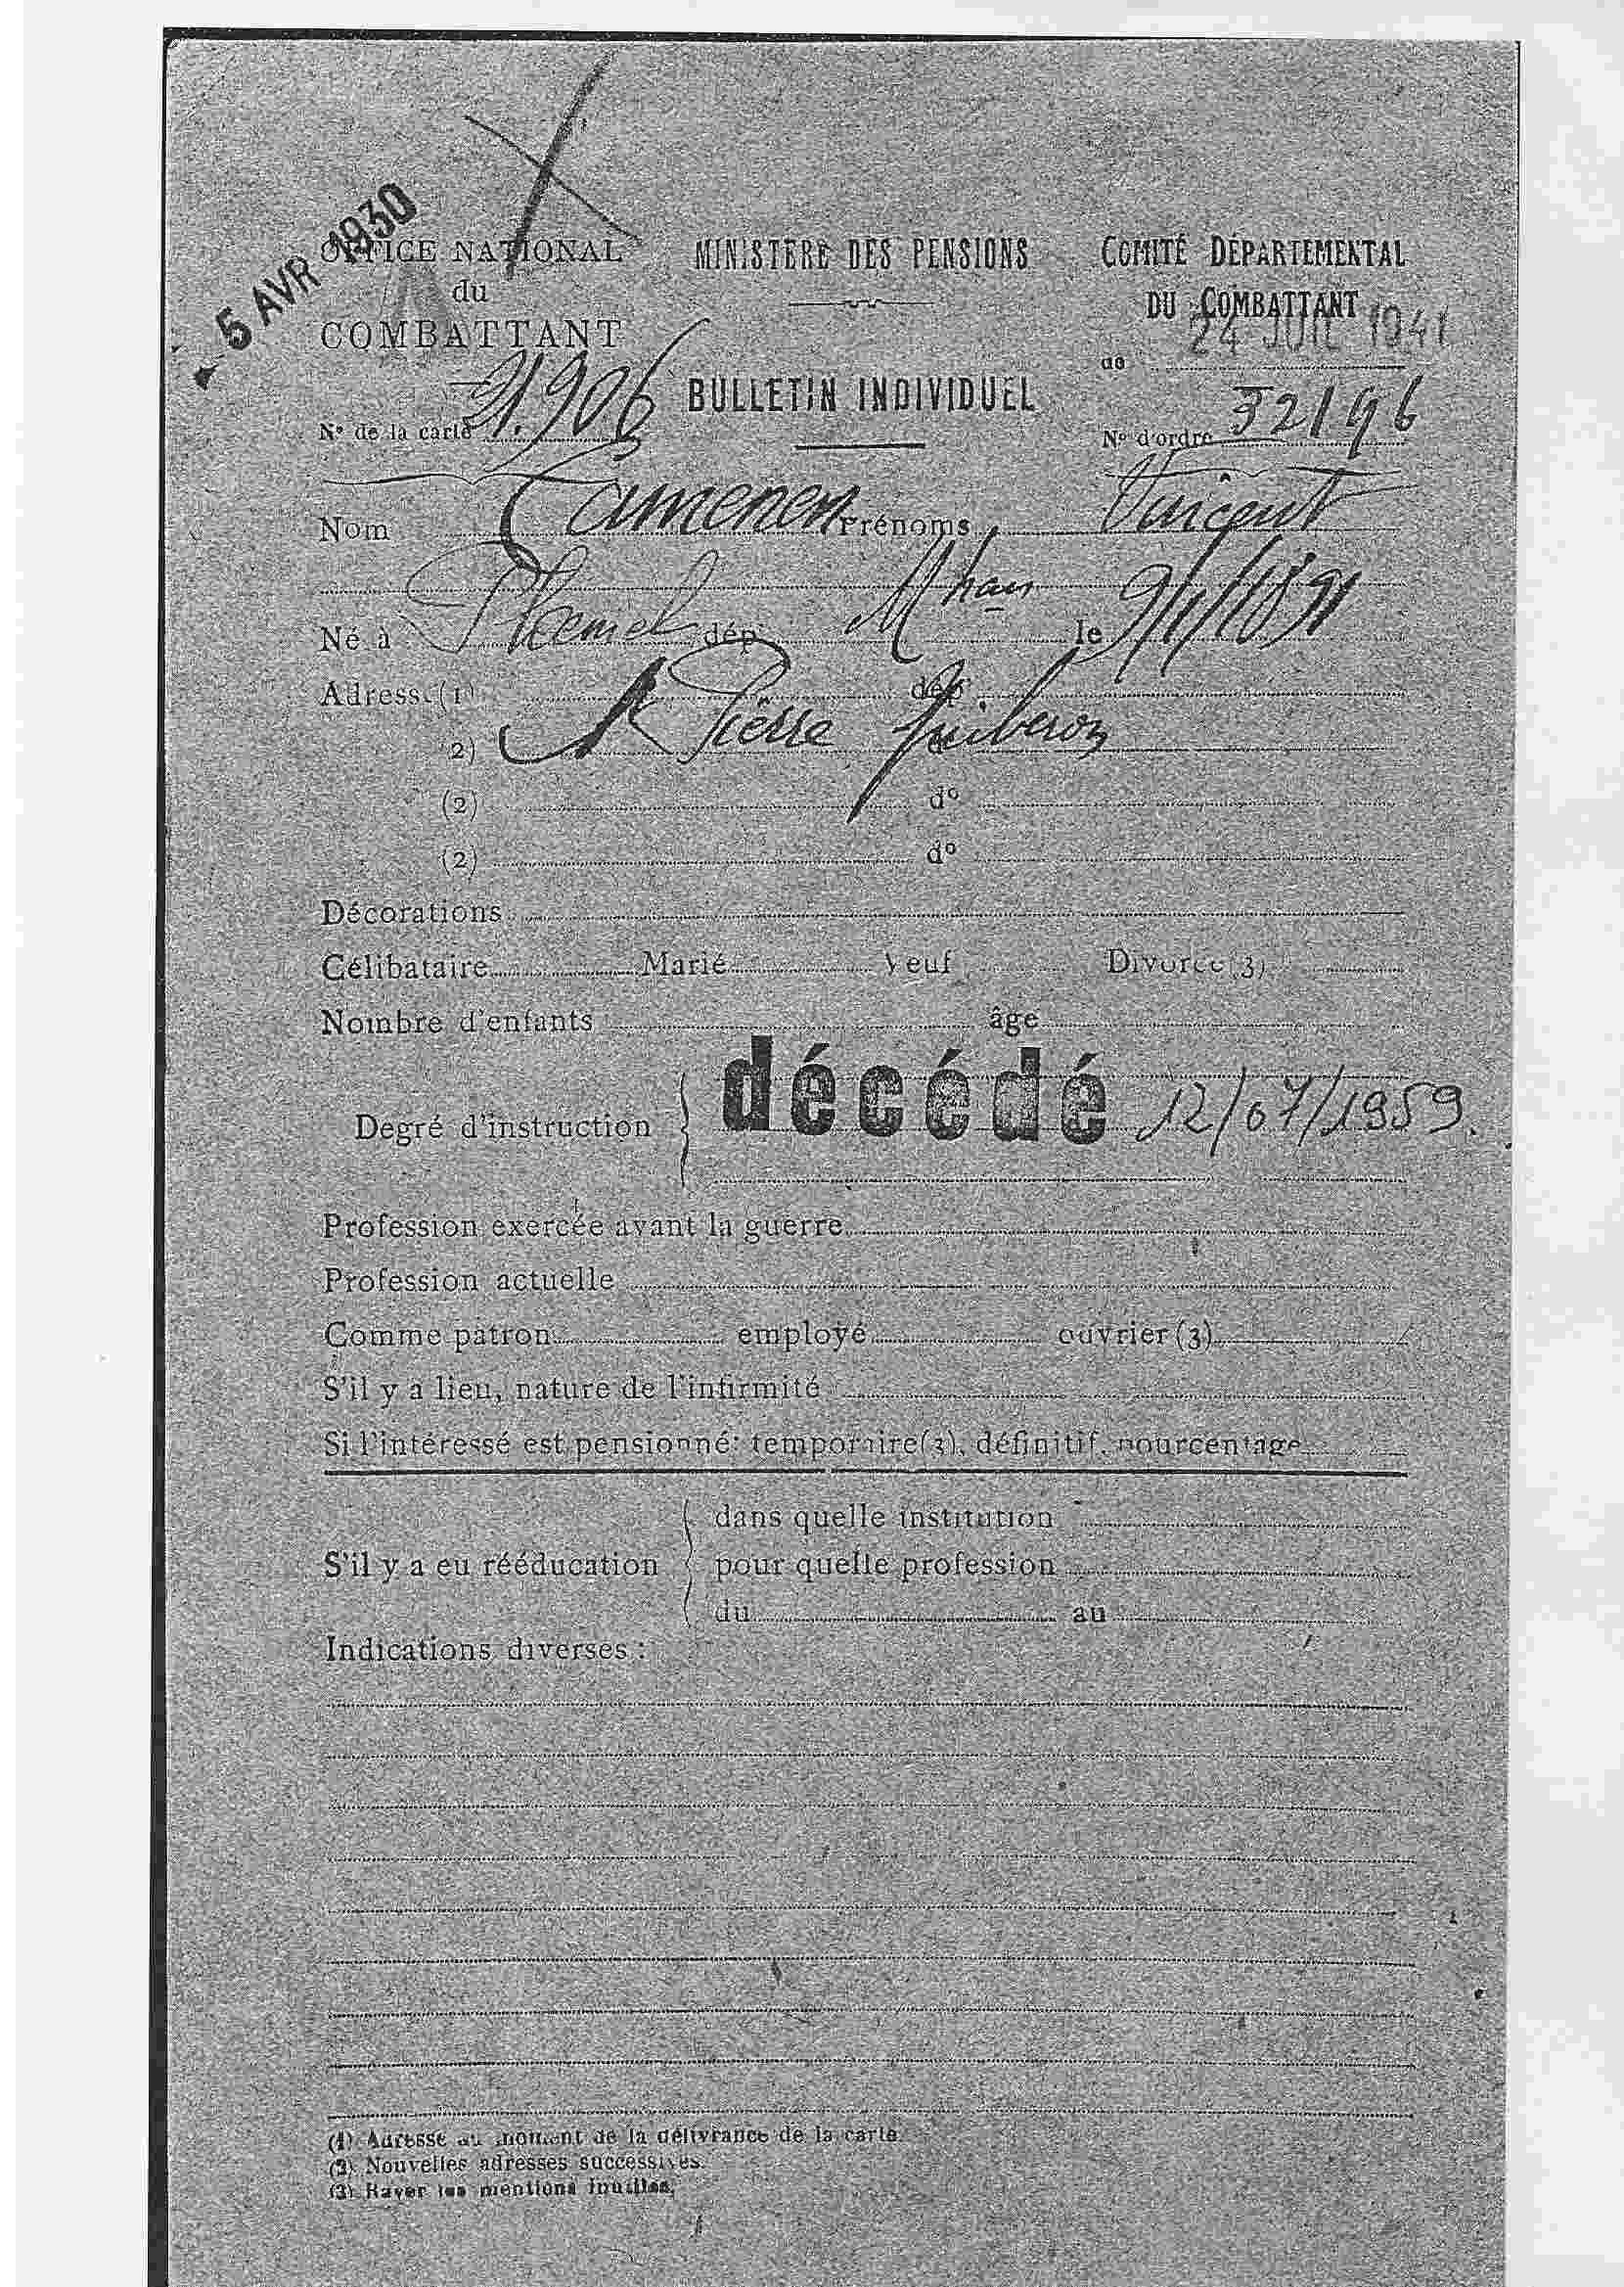 5 AVR 1930
OFFICE NATIONAL
du
COMBATTANT
N° de la carte 31.906
MINISTERE DES PENSIONS
BULLETIN INDIVIDUEL
COMITÉ DÉPARTEMENTAL
DU COMBATTANT
24 JUIL 1941
de
N° d'ordre 32196
Nom Camenen Prénoms Vincent
Né à dép le 9/1/1891
Adresse (1) dép
(2) St Pierre Quiberon
(2) d°
(2) d°
Décorations
Célibataire Marié Veuf Divorcé (3)
Nombre d'enfants âge
Degré d'instruction décédé 12/07/1959.
Profession exercée avant la guerre
Profession actuelle
Comme patron employé ouvrier (3)
S'il y a lieu, nature de l'infirmité
Si l'intéressé est pensionné: temporaire (3), définitif, pourcentage
S'il y a eu rééducation
dans quelle institution
pour quelle profession
du au
Indications diverses :
(1) Adresse au moment de la délivrance de la carte.
(2) Nouvelles adresses successives.
(3) Rayer les mentions inutiles.